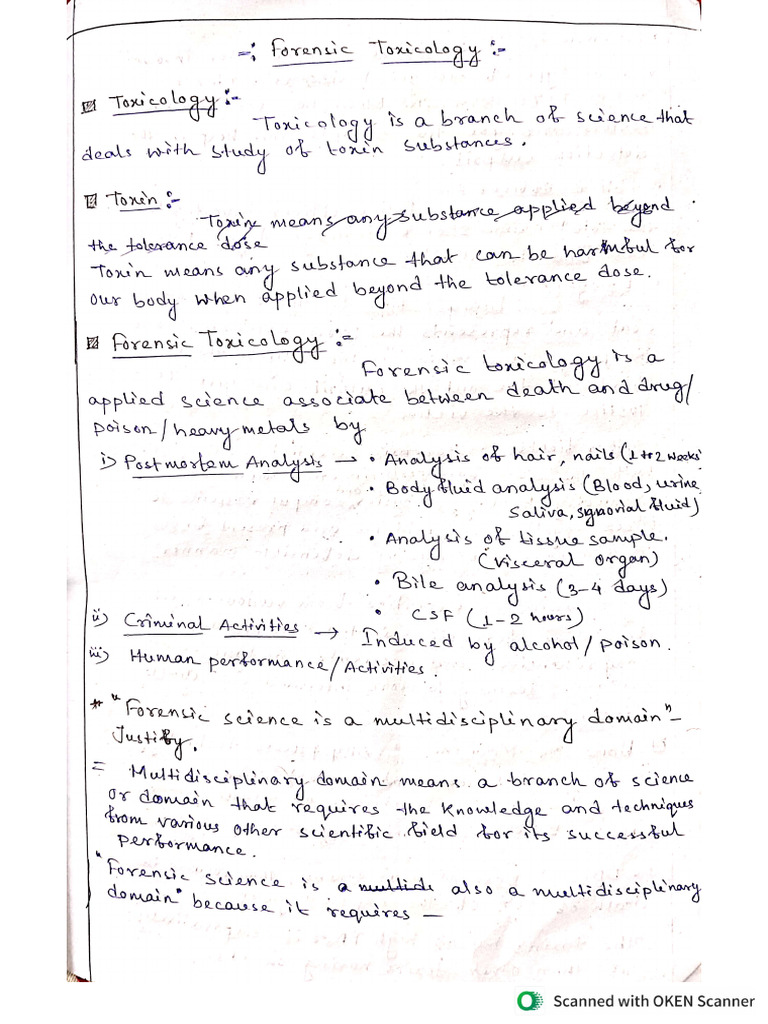 -: Forensic Toxicology :-
Toxicology :-
Toxicology is a branch of science that
deals with study of toxin substances.
Toxin :-
Toxin means any substance applied beyond
the tolerance dose
Toxin means any substance that can be harmful for
our body when applied beyond the tolerance dose.
Forensic Toxicology :-
Forensic toxicology is a
applied science associate between death and drug/
poison/heavy metals by
i) Postmortem Analysis → • Analysis of hair, nails (1 to 2 weeks
• Body fluid analysis (Blood, urine
saliva, signorial fluid)
• Analysis of tissue sample.
(visceral organ)
• Bile analysis (3-4 days)
• CSF (1-2 hours)
ii) Criminal Activities → Induced by alcohol/poison.
iii) Human performance/Activities.
* "Forensic science is a multidisciplinary domain" -
Justify.
= Multidisciplinary domain means a branch of science
or domain that requires the knowledge and techniques
from various other scientific field for its successful
performance.
"Forensic science is a multidi also a multidisciplinary
domain" because it requires -
Scanned with OKEN Scanner